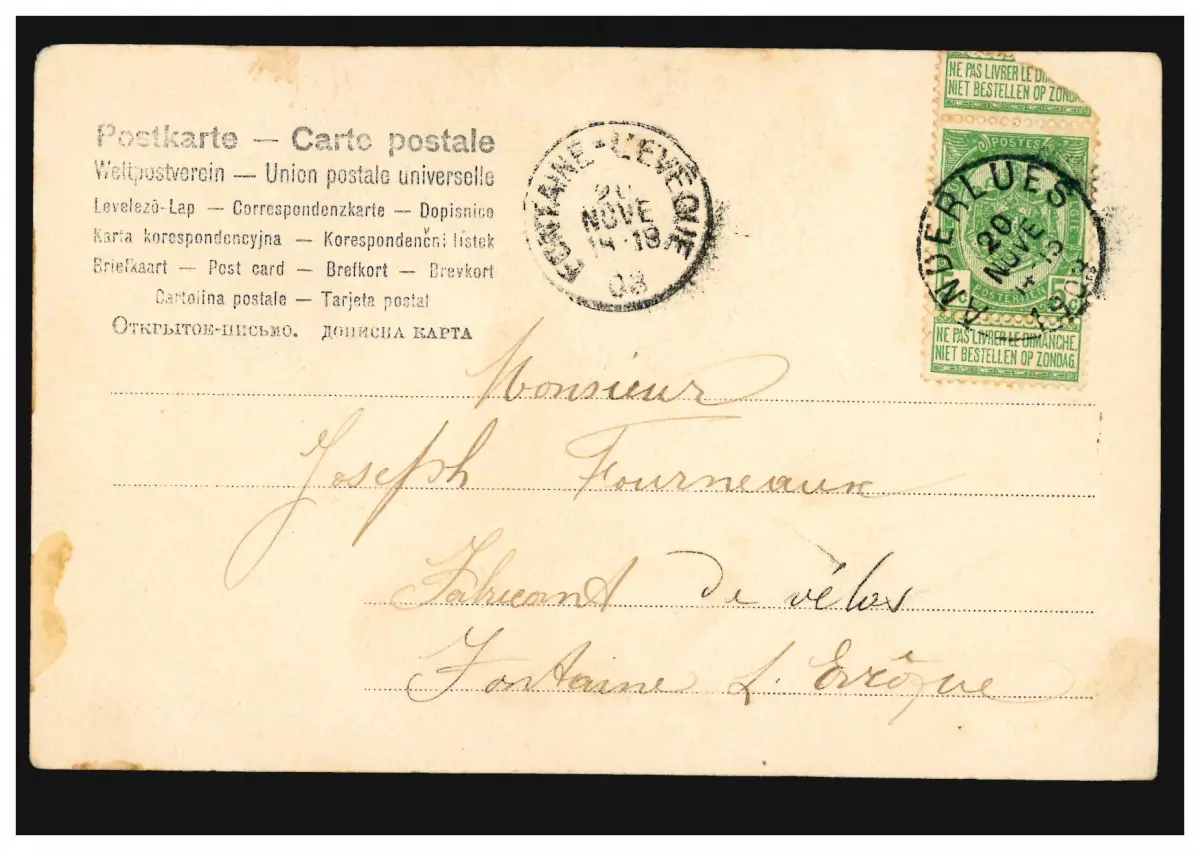 Postkarte — Carte postale
Weltpostverein — Union postale universelle
Levelezö-Lap — Correspondenzkarte — Dopisnice
Karta korespondencyjna — Korespondenční lístek
Briefkaart — Post card — Brefkort — Brevkort
Cartolina postale — Tarjeta postal
Открытое-письмо. дописна карта
FONTAINE-L'EVÊQUE
20
NOVE
18-19
03
NE PAS LIVRER LE DIMA
NIET BESTELLEN OP ZONDA
POSTES
POSTERIJEN
ANDERLUES
20
NOVE
1903
NE PAS LIVRER LE DIMANCHE.
NIET BESTELLEN OP ZONDAG.
Monsieur
Joseph Fourneaux
Fabricant de vélos
Fontaine L. Evêque